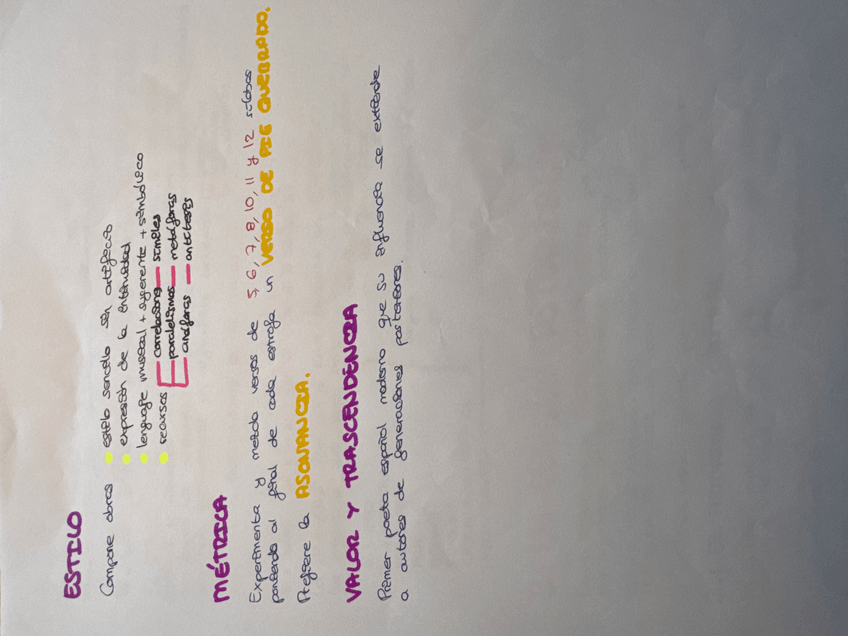 ESTILO
Compone obras • estilo sencillo sin artificio
• expresión de la intimidad
• lenguaje musical + sugerente + simbólico
• recursos correlaciones — símiles
paralelismos — metáforas
anáforas — antítesis
MÉTRICA
Experimenta y mezcla versos de 5, 6, 7, 8, 10, 11 y 12 sílabas
poniendo al final de cada estrofa un VERSO DE PIE QUEBRADO.
Prefiere la ASONANCIA.
VALOR Y TRASCENDENCIA
Primer poeta español moderno que su influencia se extiende
a autores de generaciones posteriores.